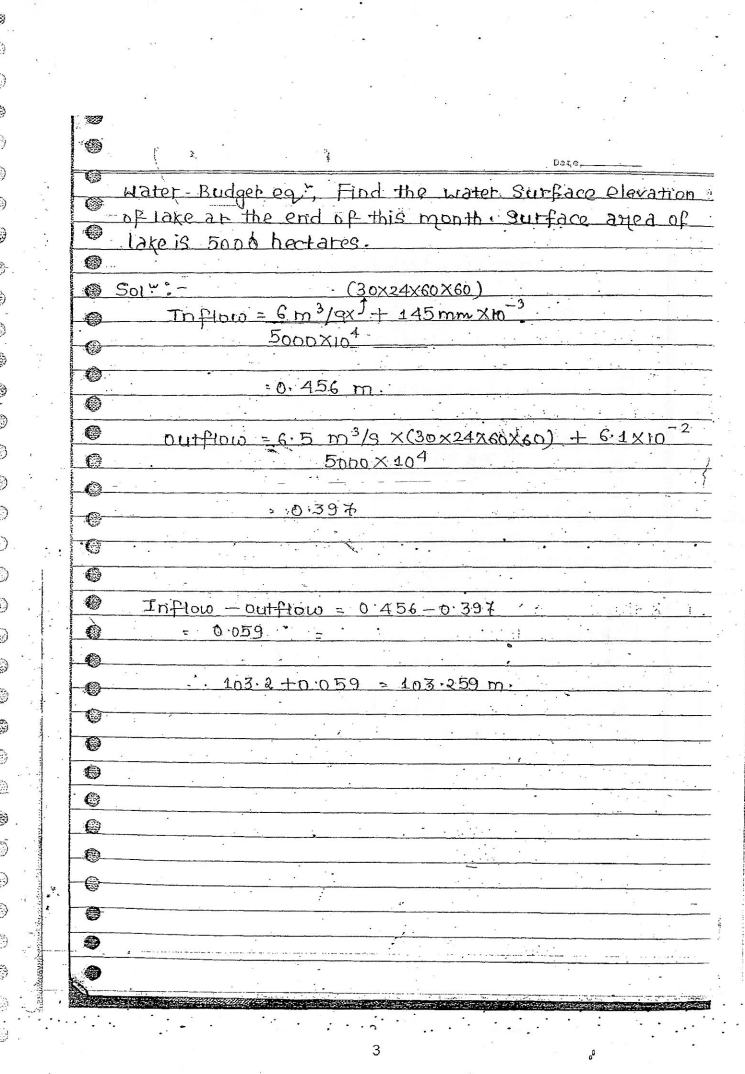 Date
Water-Budget eqⁿ, Find the water Surface elevation
of lake at the end of this month. Surface area of
lake is 5000 hectares.
Solⁿ:-
(30X24X60X60)
Inflow = 6 m³/s X + 145mm X10⁻³
5000X10⁴
= 0.456 m.
outflow = 6.5 m³/s X(30X24X60X60) + 6.1X10⁻²
5000 X 10⁴
= 0.397
Inflow - outflow = 0.456-0.397
= 0.059 =
∴ 103.2 +0.059 = 103.259 m.
3